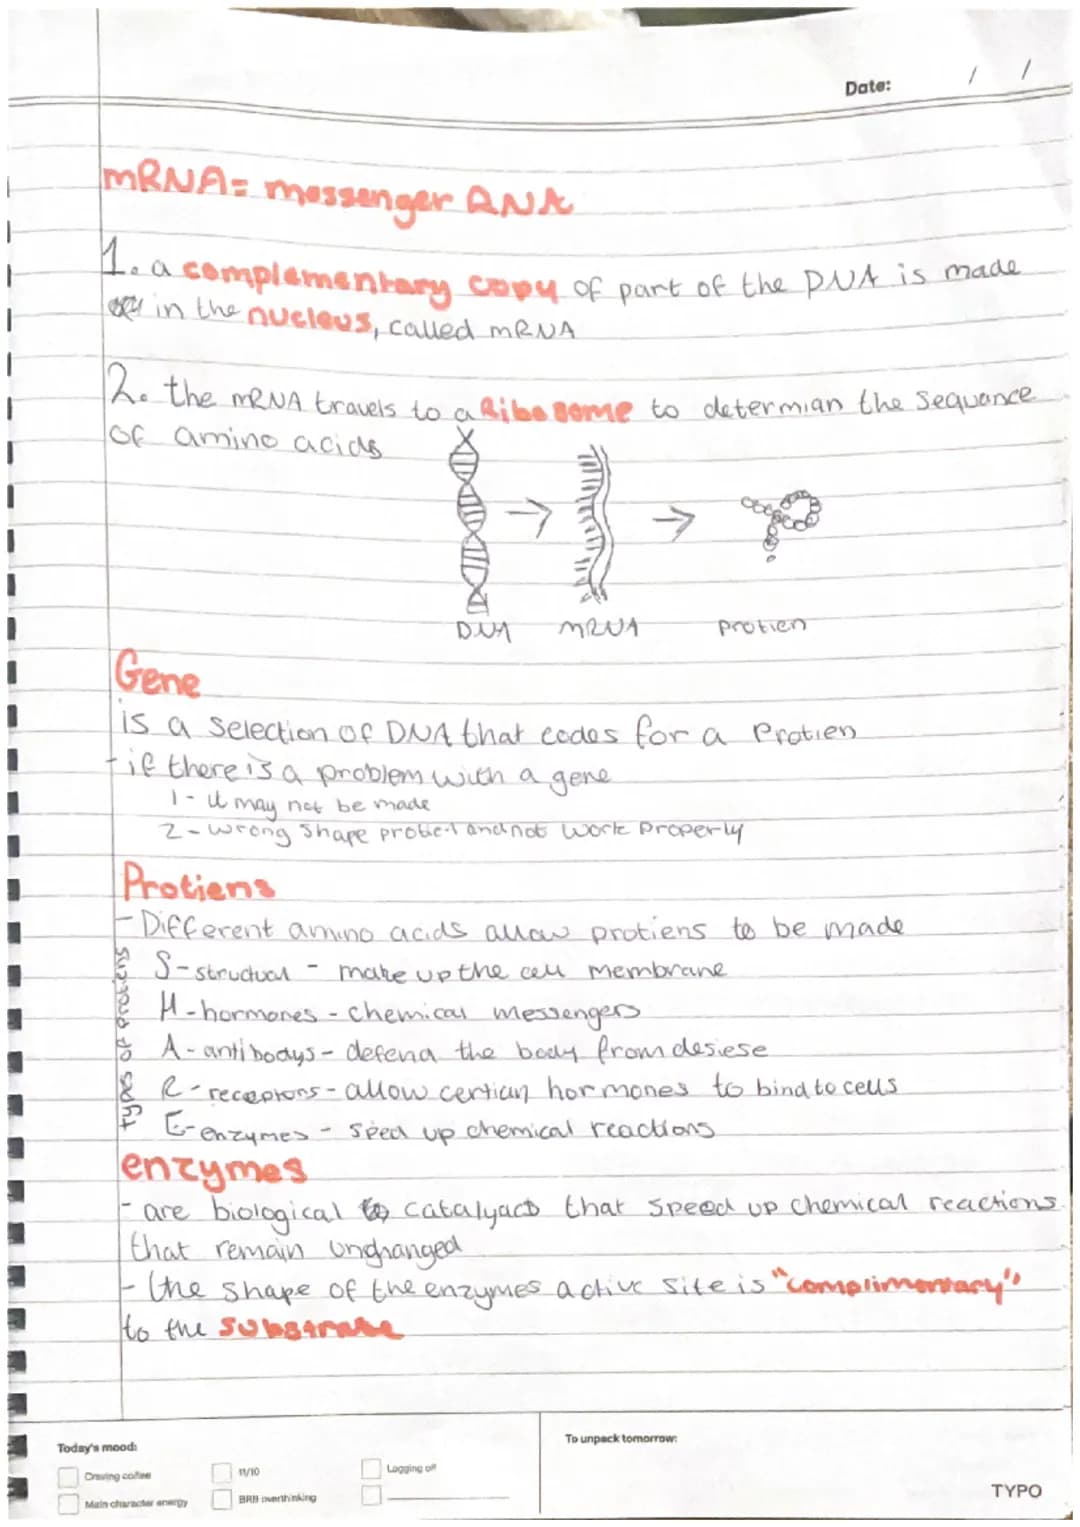 Date: / /
mRNA= messenger RNA
1. a complementary copy of part of the DNA is made
in the nucleus, called mRNA
2. the mRNA travels to a Ribosome to determian the sequance
of amino acids
DNA mRNA Protien
Gene
is a selection of DNA that codes for a Protien
- if there is a problem with a gene
1- it may not be made
2- wrong shape and not work properly
Protiens
- Different amino acids allow protiens to be made
S- structual - make up the cell membrane
H- hormones - chemical messengers
A- antibodys - defend the body from desiese
R- receptors - allow certian hormones to bind to cells
E- enzymes - speed up chemical reactions
enzymes
- are biological catalyacts that speed up chemical reactions
that remain unchanged
- the shape of the enzymes active site is "complimentary"
to the substrate
Today's mood:
Craving coffee
11/10
Logging off
Main character energy
BRB overthinking
To unpack tomorrow:
TYPO